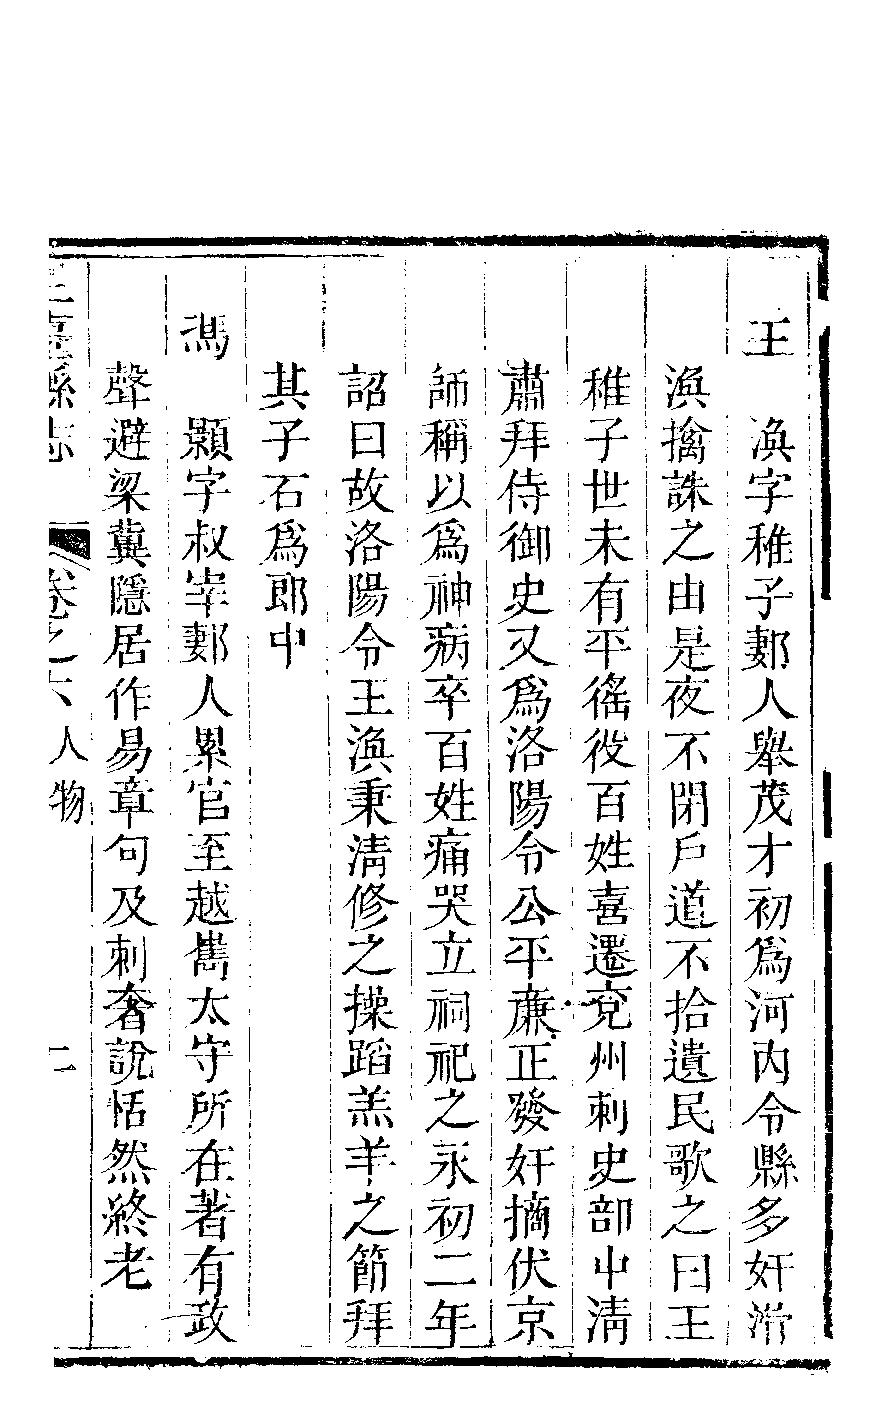 王　渙字稚子郪人舉茂才初爲河內令縣多奸渙
渙擒誅之由是夜不閉戶道不拾遺民歌之曰王
稚子世未有平徭役百姓喜遷兗州刺史部中淸
肅拜侍御史又爲洛陽令公平廉正發奸摘伏京
師稱以爲神病卒百姓痛哭立祠祀之永初二年
詔曰故洛陽令王渙秉淸修之操蹈羔羊之節拜
其子石爲郎中
馮　顥字叔宰郪人累官至越嶲太守所在著有政
聲避梁冀隱居作易章句及刺奢說恬然終老
三臺縣志　卷之六人物　二